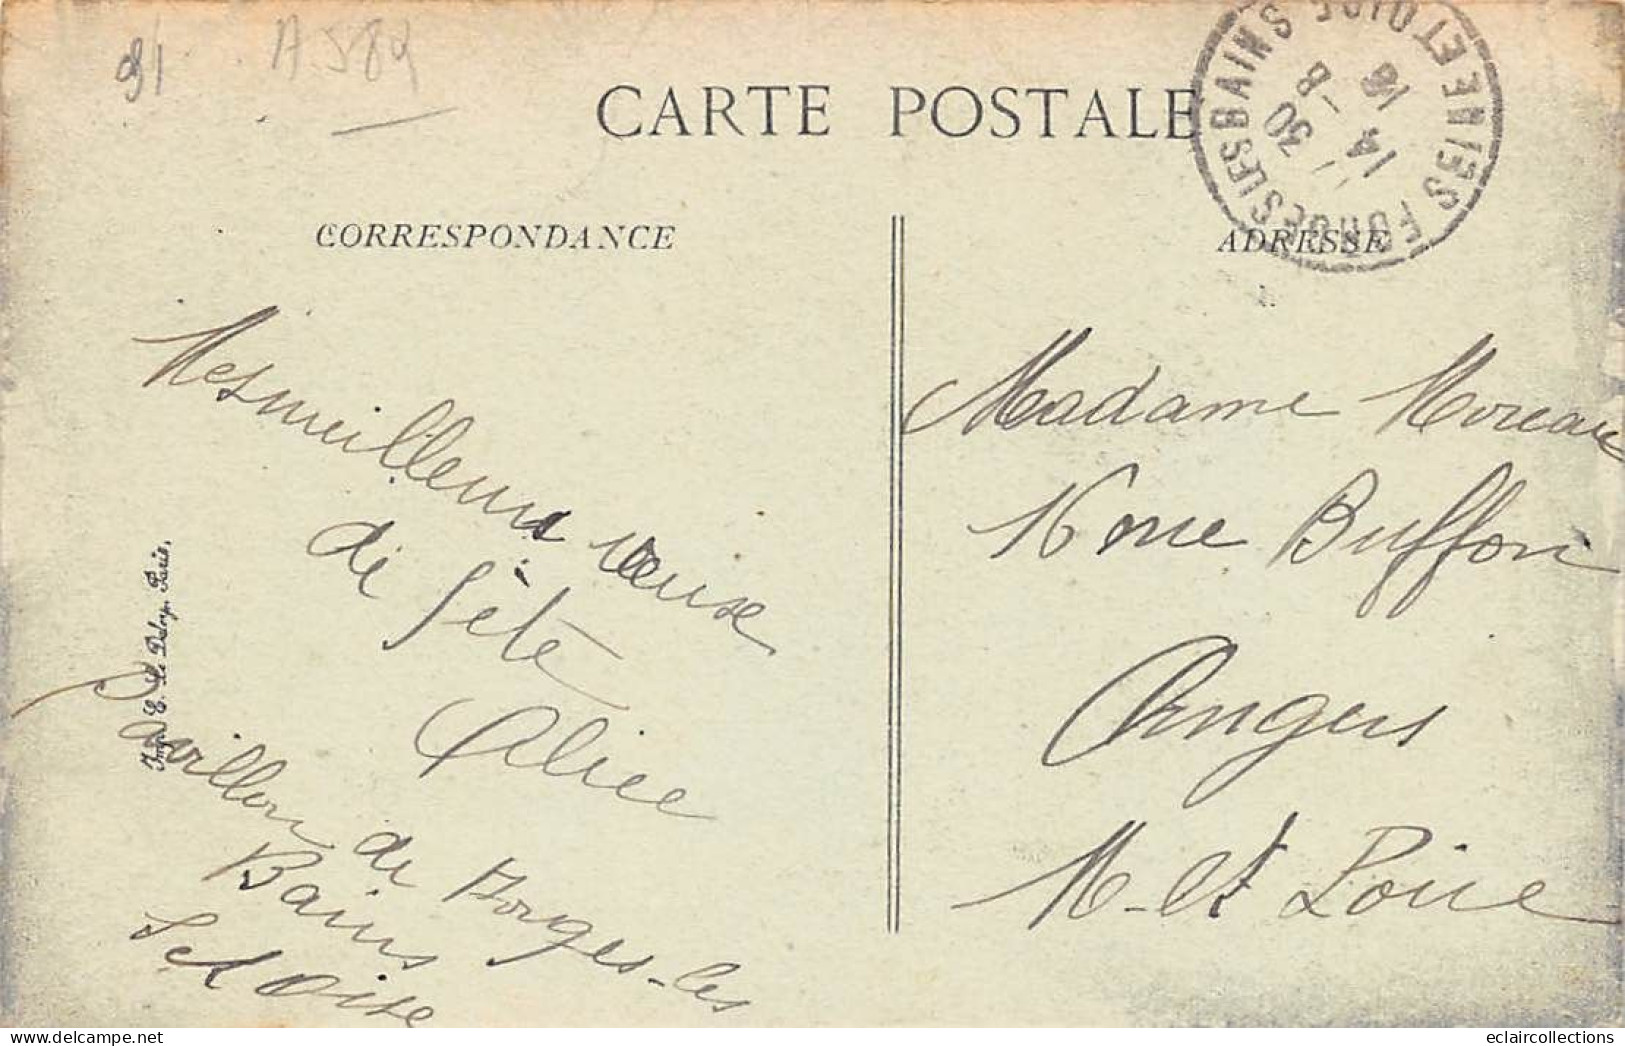 91 A.589
CARTE POSTALE
FORGES LES BAINS SEINE ET OISE
14 30
14 - 8
16
CORRESPONDANCE
ADRESSE
Mes meilleurs vœux
de fête
Alice
Pavillon de Forges-les
Bains
S et Oise
Imp. E. Le Deley, Paris.
Madame Moreau
16 rue Buffon
Angers
M-et Loire
eclaircollections